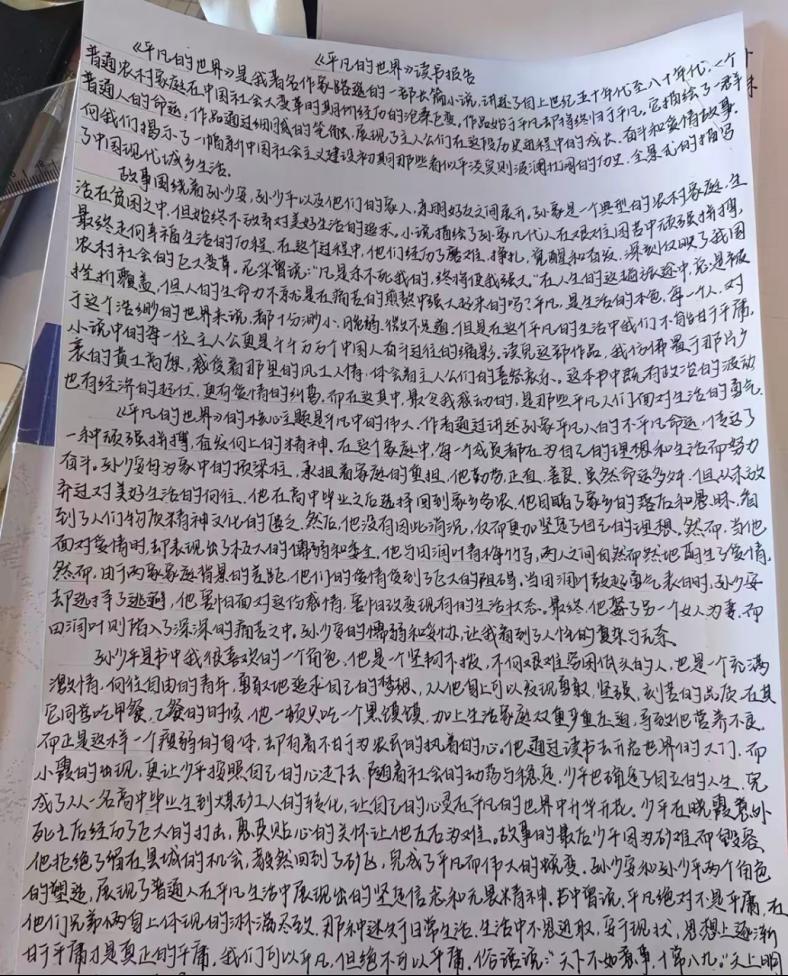 《平凡的世界》读书报告
《平凡的世界》是我著名作家路遥的一部长篇小说,讲述了自上世纪五十年代至八十年代,一个
普通农村家庭在中国社会大变革时期所经历的沧桑巨变。作品始于平凡却持终归于平凡。它描绘了一群平
普通人的命运,作品通过细腻的笔触,展现了主人公们在这段历史进程中的成长、奋斗和爱情故事。
向我们揭示了一幅新中国社会主义建设初期那些看似平淡实则波澜壮阔的历史,全景式的描写
了中国现代城乡生活。
故事围绕着孙少安,孙少平以及他们的家人,亲朋好友之间展开。孙家是一个典型的农村家庭,生
活在贫困之中,但始终不放弃对美好生活的追求。小说描绘了孙家几代人在艰难困苦中顽强拼搏,
最终走向幸福生活的历程。在这个过程中,他们经历了磨难、挣扎,觉醒和奋发,深刻反映了我国
农村社会的巨大变革。尼采曾说:“凡是杀不死我的,终将使我强大。”在人生的这趟旅途中,总是被
挫折覆盖,但人的生命力不就是在痛苦的煎熬中强大起来的吗?平凡,是生活的本色,每一个人,对
于这个浩渺的世界来说,都十分渺小、脆弱、微不足道,但是在这个平凡的生活中我们不能甘于平庸。
小说中的每一位主人公更是千千万万个中国人奋斗过往的缩影。读完这部作品,我仿佛置于那片乡
袤的黄土高原,感受着那里的风土人情,体会着主人公们的喜怒哀乐。这本书中既有政治的波动
也有经济的起伏,更有爱情的纠葛,而在这其中,最令我感动的,是那些平凡人们面对生活的勇气。
《平凡的世界》的核心主题是平凡中的伟大,作者通过讲述孙家平凡人的不平凡命运,传达了
一种顽强拼搏,奋发向上的精神。在这个家庭中,每一个成员都在为自己的理想和生活而努力
奋斗。孙少安身为家中的顶梁柱,承担着家庭的负担,他勤劳、正直、善良,虽然命运多舛,但从未放
弃过对美好生活的向往。他在高中毕业之后选择回到家乡务农,他目睹了家乡的落后和愚昧,看
到了人们物质精神文化的匮乏。然后,他没有因此消沉,反而更加坚定了自己的理想。然而,当他
面对爱情时,却表现出了极大的懦弱和妥协,他与田润叶青梅竹马,两人之间自然而然地萌生了爱情,
然而,由于两家家庭背景的差距,他们的爱情受到了巨大的阻碍。当田润叶鼓起勇气表白时,孙少安
却选择了逃避,他害怕面对这份感情,害怕改变现有的生活状态。最终,他娶了另一个女人为妻,而
田润叶则陷入了深深的痛苦之中。孙少安的懦弱和妥协,让我看到了人性的复杂与无奈。
孙少平是书中我很喜欢的一个角色,他是一个坚韧不拔,不向艰难苦困低头的人,也是一个充满
激情,向往自由的青年,勇敢地追求自己的梦想。从他身上可以发现勇敢,坚强,刻苦的品质,在其
它同学吃甲餐,乙餐的时候,他一顿只吃一个黑馍馍,加上生活家庭双重多重压迫,导致他营养不良。
而正是这样一个瘦弱的身体,却有着不甘为农民的执着的心。他通过读书去开启世界的大门,而
小霞的出现,更让少平按照自己的心走下去。随着社会的动荡与稳定,少平也确定了自立的人生,完
成了从一名高中毕业生到煤矿工人的转化,让自己的心灵在平凡的世界中开华开花。少平在晓霞意外
死亡后经历了巨大的打击,惠英贴心的关怀让他左右为难。故事的最后少平因为矿难而毁容
他拒绝了留在县城的机会,毅然回到了矿山,完成了平凡而伟大的蜕变。孙少安和孙少平两个角色
的塑造,展现了普通人在平凡生活中展现出的坚定信念和无畏精神。书中曾说,平凡绝对不是平庸,在
他们兄弟俩身上体现的淋漓尽致。那种迷失于日常生活,生活中不思进取,安于现状,思想上逐渐
甘于平庸才是真正的平庸。我们可以平凡,但绝不可以平庸。俗话说:“天下不如意事,十常八九。”天上明